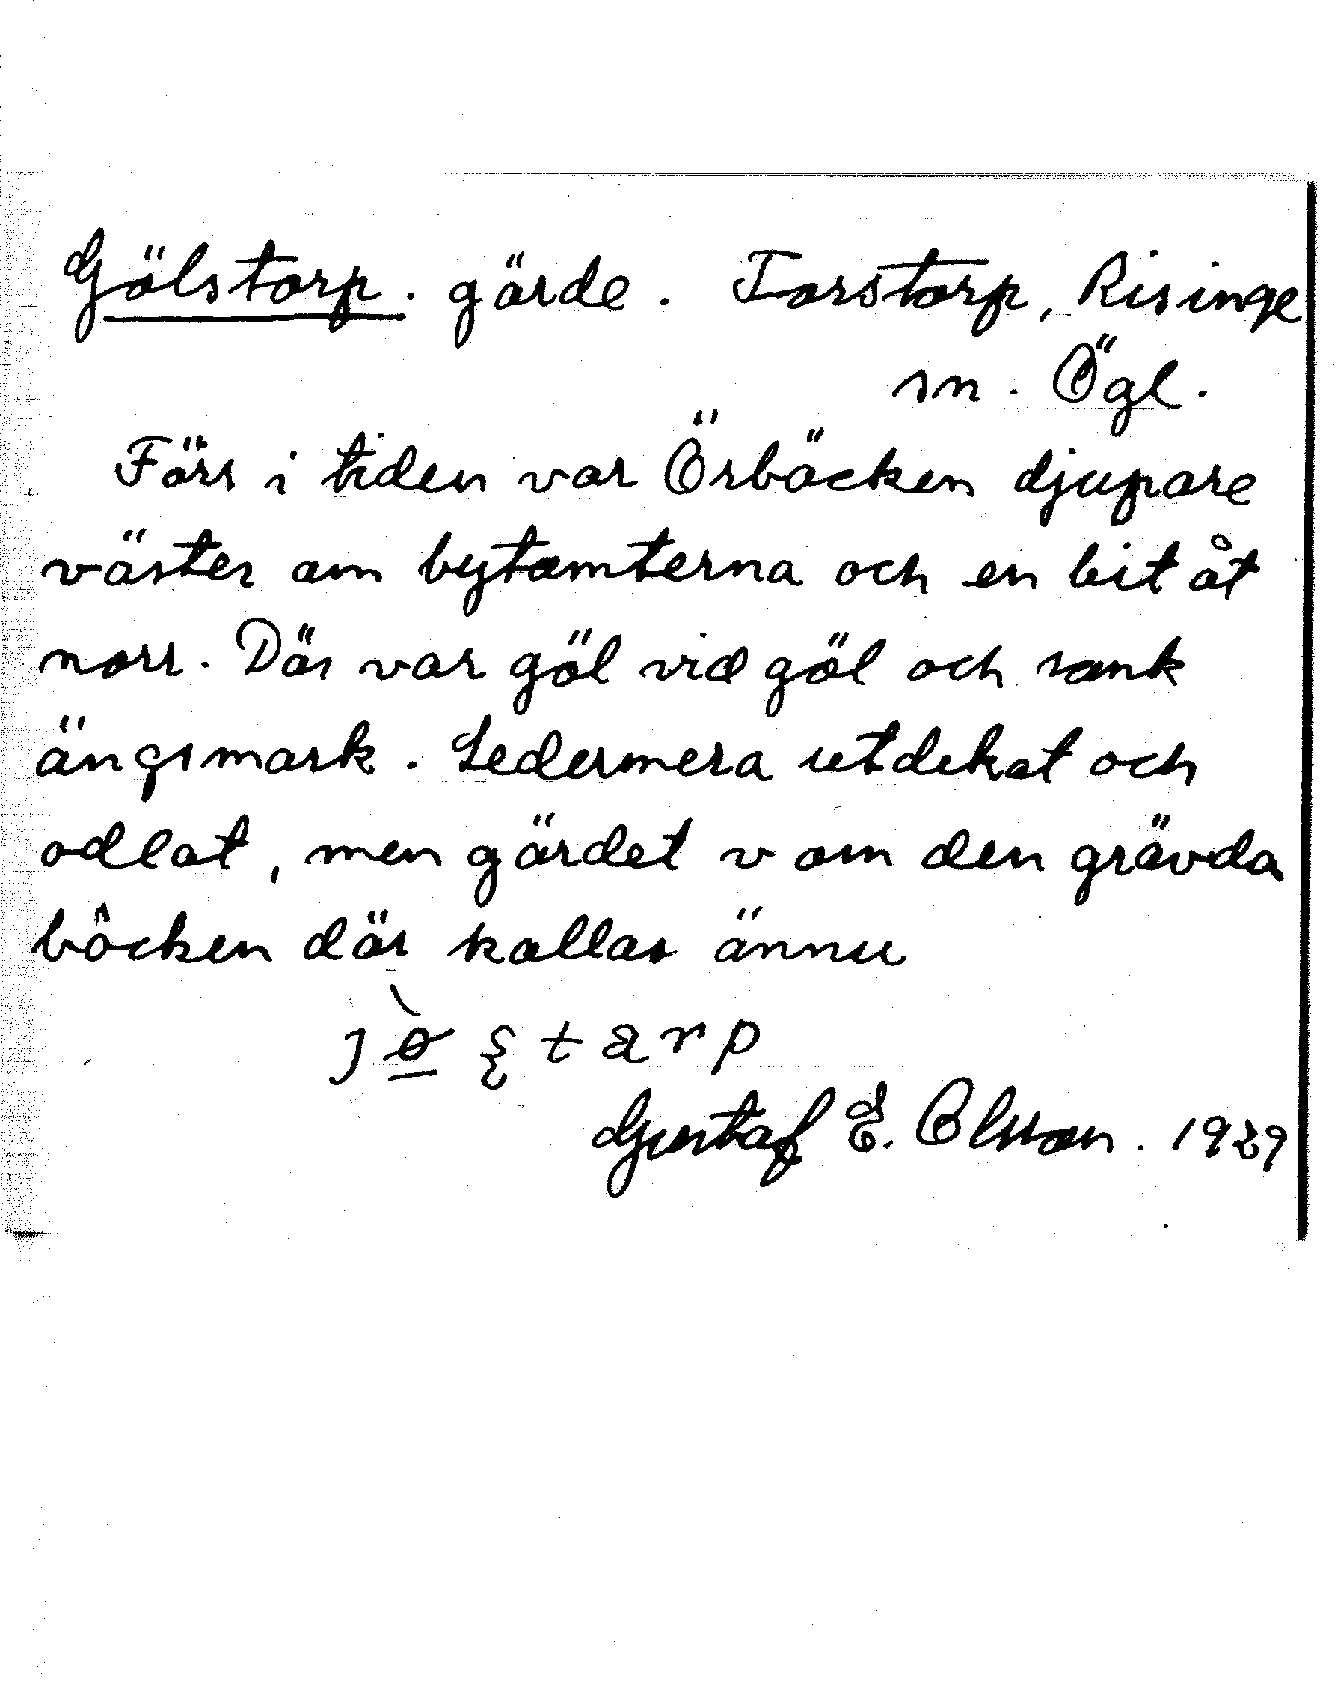 Gölstorp. gärde. Torstorp, Risinge
sn. Ögl.
Förr i tiden var Örbäcken djupare
väster om bytomterna och en bit åt
norr. Där var göl vid göl och sank
ängsmark. Sedermera utdikat och
odlat, men gärdet v om den grävda
bäcken där kallas ännu
Gustaf E. Olsson. 1929